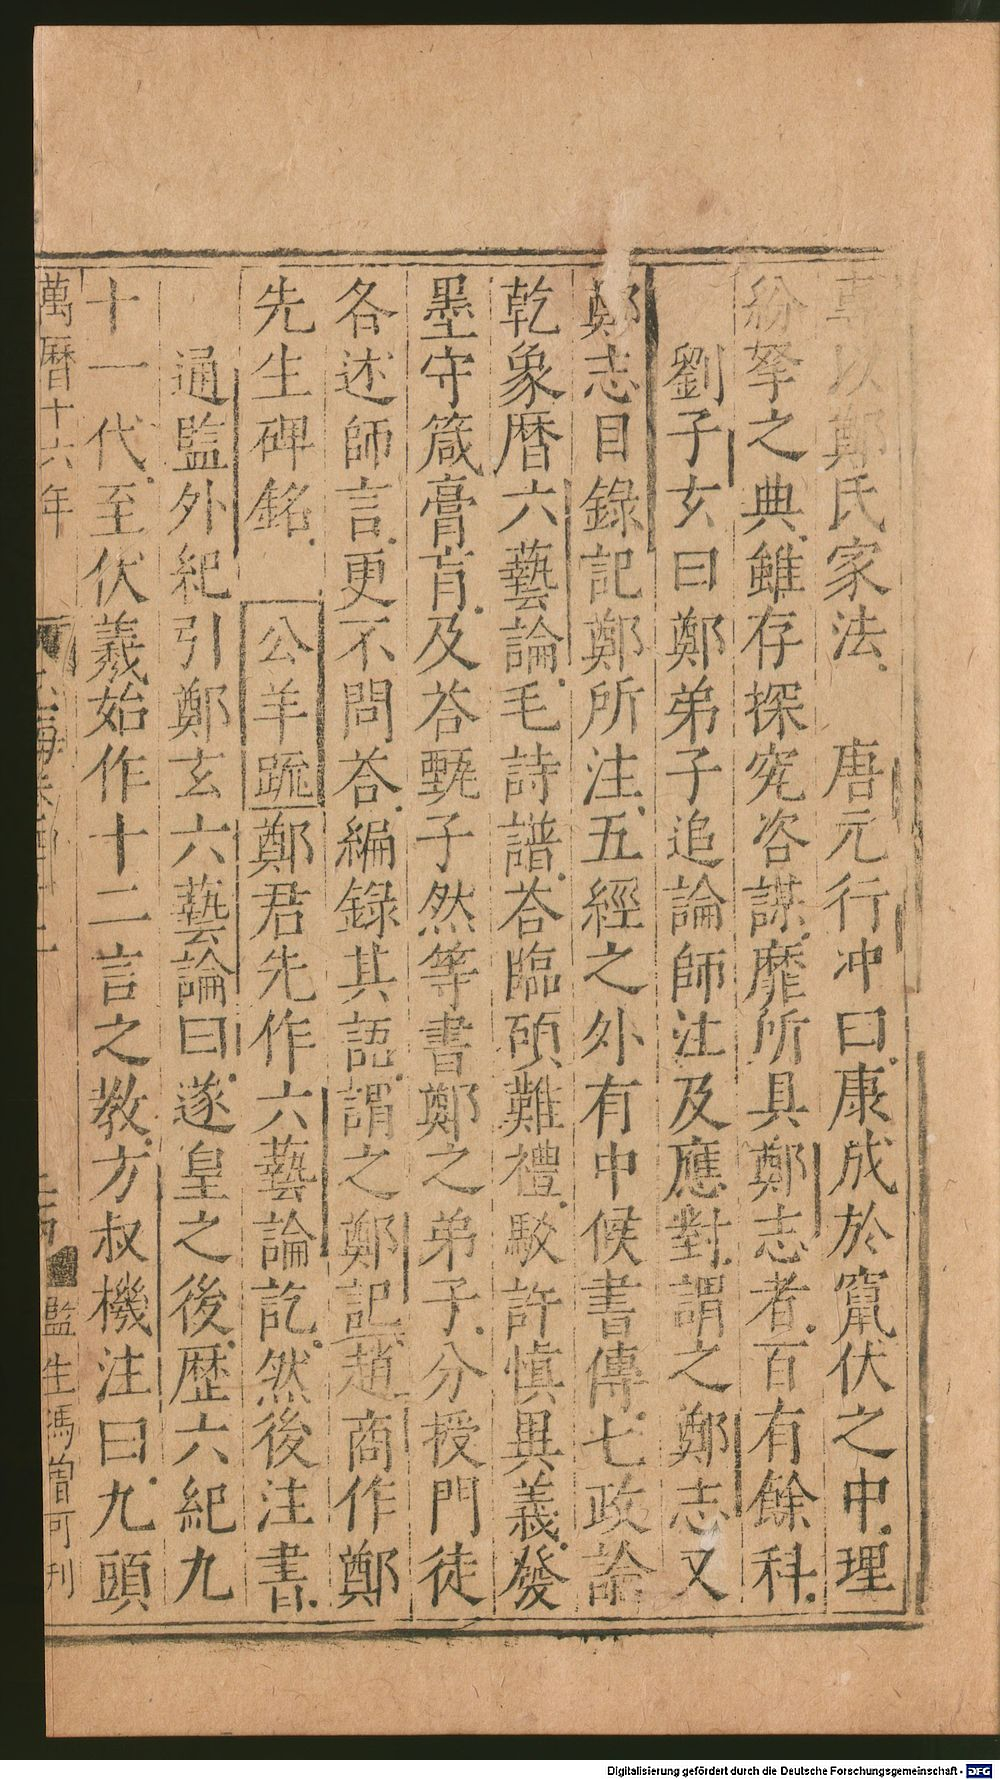 以鄭氏家法　唐元行冲曰康成於竄伏之中理
紛拏之典雖存探究咨謀靡所具鄭志者百有餘科
劉子玄曰鄭弟子追論師注及應對謂之鄭志又
鄭志目錄記鄭所注五經之外有中候書傳七政論
乾象曆六藝論毛詩譜荅臨碩難禮駁許慎異義發
墨守箴膏肓及荅甄子然等書鄭之弟子分授門徒
各述師言更不問荅編錄其語謂之鄭記趙商作鄭
先生碑銘　公羊䟽鄭君先作六藝論訖然後注書
通監外紀引鄭玄六藝論曰遂皇之後歷六紀九
十一代至伏羲始作十二言之教方叔機注曰九頭
萬曆十六年
海
監生馮曾可刊
Digitalisierung gefördert durch die Deutsche Forschungsgemeinschaft - DFG